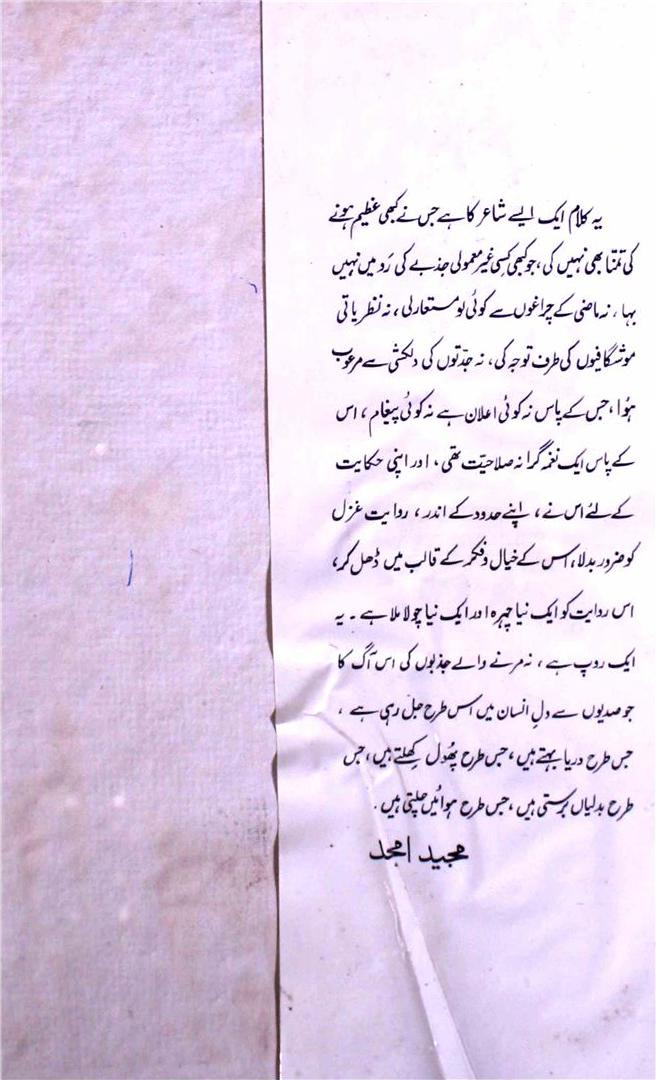 یہ کلام ایک ایسے شاعر کا ہے جس نے کبھی عظیم ہونے
کی تمنا بھی نہیں کی، جو کبھی کسی غیر معمولی جذبے کی رَو میں نہیں
بہا، نہ ماضی کے چراغوں سے کوئی لو مستعار لی، نہ نظریاتی
موشگافیوں کی طرف توجہ کی، نہ جدّتوں کی دلکشی سے مرعوب
ہُوا، جس کے پاس نہ کوئی اعلان ہے نہ کوئی پیغام، اس
کے پاس ایک نغمہ گرانہ صلاحیّت تھی، اور اپنی حکایت
کے لئے اس نے، اپنے حدود کے اندر، روایت غزل
کو ضرور بدلا، اس کے خیال و فکر کے قالب میں ڈھل کر،
اس روایت کو ایک نیا چہرہ اور ایک نیا چولا ملا ہے۔ یہ
ایک روپ ہے، نہ مرنے والے جذبوں کی اس آگ کا
جو صدیوں سے دلِ انسان میں اس طرح جل رہی ہے،
جس طرح دریا بہتے ہیں، جس طرح پھُول کھِلتے ہیں، جس
طرح بدلیاں برستی ہیں، جس طرح ہوائیں چلتی ہیں۔
مجید امجد